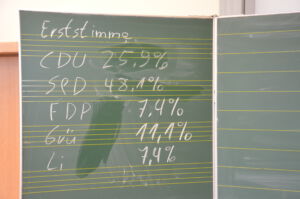 Erststimme
CDU 25,9%
SPD 48,1%
FDP 7,4%
Grü 11,1%
Li 7,4%